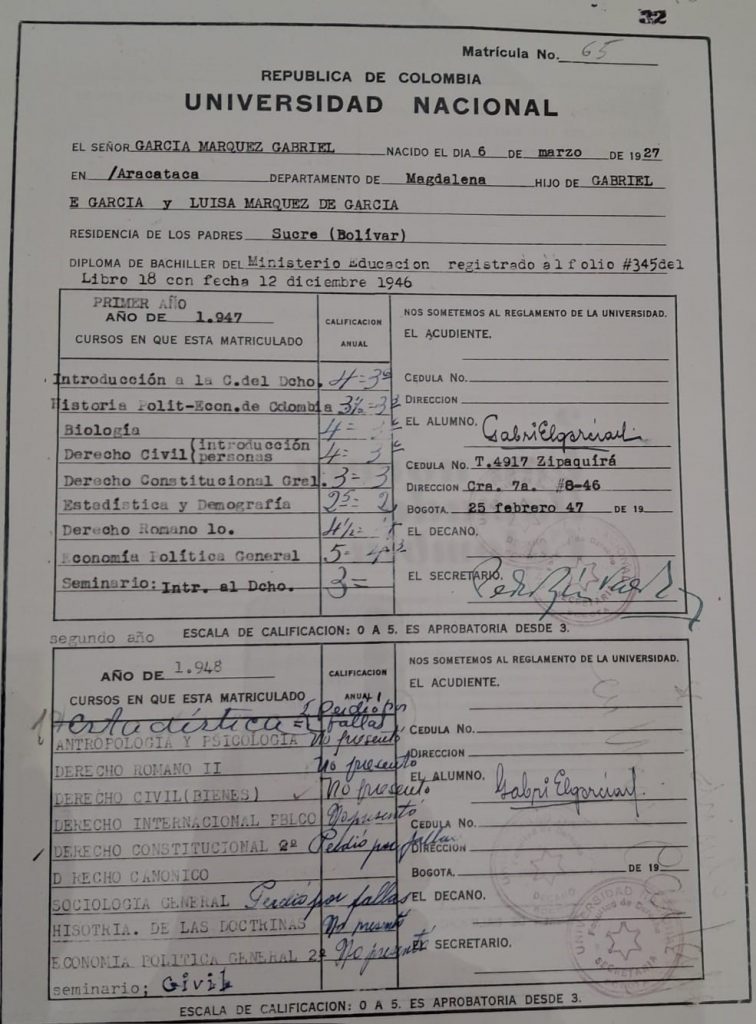 32
Matrícula No. 65
REPUBLICA DE COLOMBIA
UNIVERSIDAD NACIONAL
EL SEÑOR GARCIA MARQUEZ GABRIEL NACIDO EL DIA 6 DE marzo DE 1927
EN /Aracataca DEPARTAMENTO DE Magdalena HIJO DE GABRIEL
E GARCIA y LUISA MARQUEZ DE GARCIA
RESIDENCIA DE LOS PADRES Sucre (Bolívar)
DIPLOMA DE BACHILLER DEL Ministerio Educacion registrado al folio #345del
Libro 18 con fecha 12 diciembre 1946
PRIMER AÑO
AÑO DE 1.947
CURSOS EN QUE ESTA MATRICULADO
CALIFICACION
ANUAL
Introducción a la C.del Dcho. 4=3
Historia Polit-Econ.de Colombia 3½=3
Biología 4=
Derecho Civil (introducción
personas 4= 3
Derecho Constitucional Gral. 3=3
Estadística y Demografía 25=2
Derecho Romano lo. 4½=
Economía Política General 5-4
Seminario: Intr. al Dcho. 3=
NOS SOMETEMOS AL REGLAMENTO DE LA UNIVERSIDAD.
EL ACUDIENTE.
CEDULA No.
DIRECCION
EL ALUMNO. GabriElgarciaM
CEDULA No. T.4917 Zipaquirá
DIRECCION Cra. 7a. #8-46
BOGOTA. 25 febrero 47 DE 19
EL DECANO.
EL SECRETARIO.
SECRETARIA
ESCALA DE CALIFICACION: 0 A 5. ES APROBATORIA DESDE 3.
segundo año
AÑO DE 1.948
CURSOS EN QUE ESTA MATRICULADO
CALIFICACION
ANUAL
estadística = Perdió por fallas
ANTROPOLOGIA Y PSICOLOGIA No presentó
DERECHO ROMANO II No presentó
DERECHO CIVIL(BIENES) No presentó
DERECHO INTERNACIONAL PBLCO No presentó
DERECHO CONSTITUCIONAL 2º Perdió por fallas
D RECHO CANONICO
SOCIOLOGIA GENERAL Perdió por fallas
HISOTRIA. DE LAS DOCTRINAS No presentó
ECONOMIA POLITICA GENERAL 2º No presentó
seminario; Civil
NOS SOMETEMOS AL REGLAMENTO DE LA UNIVERSIDAD.
EL ACUDIENTE.
CEDULA No.
DIRECCION
EL ALUMNO. GabriElgarciaM
CEDULA No.
DIRECCION
BOGOTA. DE 19
EL DECANO.
EL SECRETARIO.
UNIVERSIDAD
SECRETARIA
ESCALA DE CALIFICACION: 0 A 5. ES APROBATORIA DESDE 3.